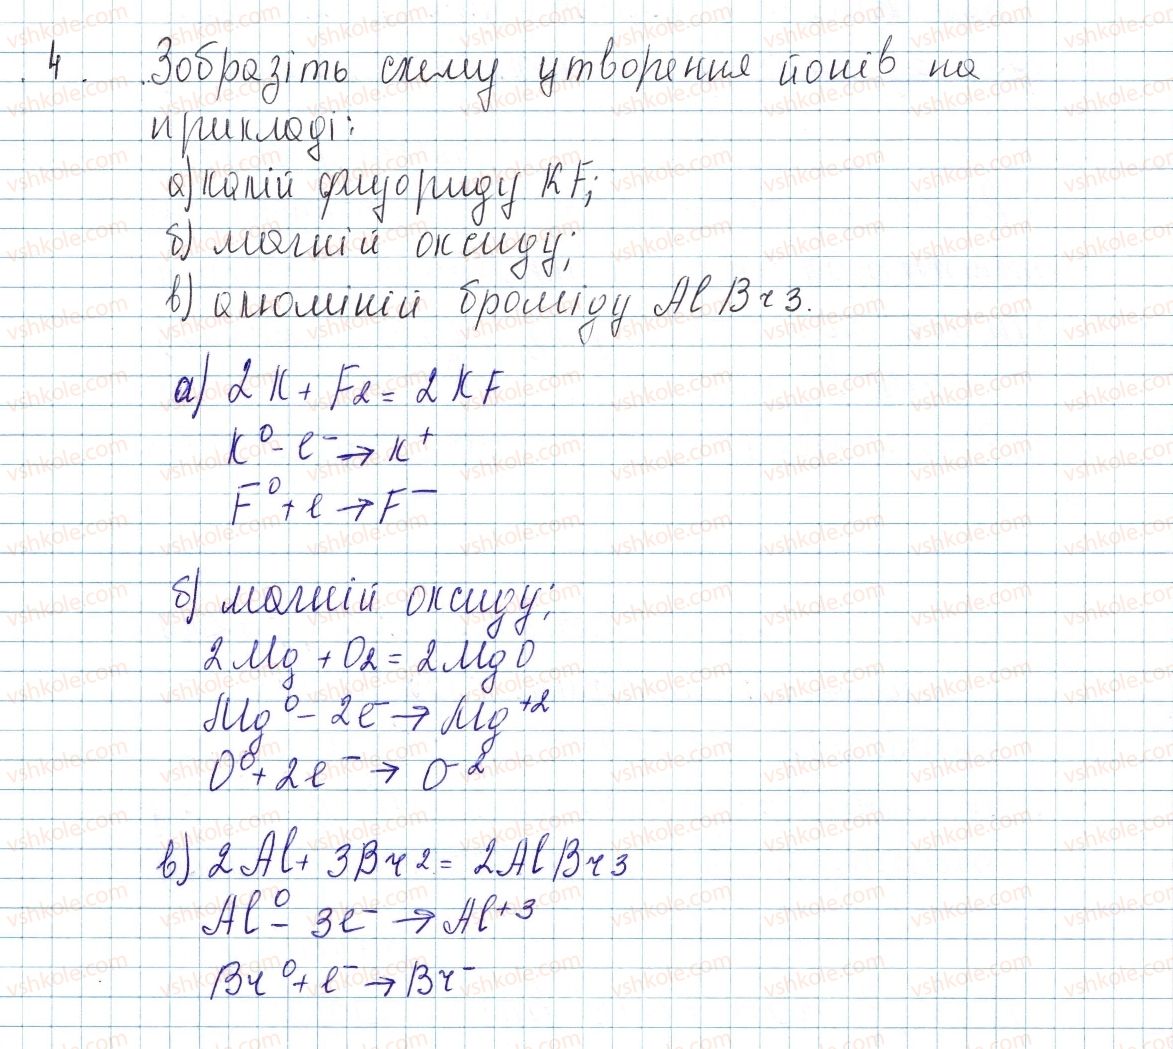 4. Зобразіть схему утворення йонів на
прикладі:
а) калій флуориду KF;
б) магній оксиду;
в) алюміній броміду AlBr3.
а) 2K + F2 = 2KF
K⁰ - e⁻ → K⁺
F⁰ + e → F⁻
б) магній оксиду;
2Mg + O2 = 2MgO
Mg⁰ - 2e⁻ → Mg⁺²
O⁰ + 2e⁻ → O⁻²
в) 2Al + 3Br2 = 2AlBr3
Al⁰ - 3e⁻ → Al⁺³
Br⁰ + e⁻ → Br⁻